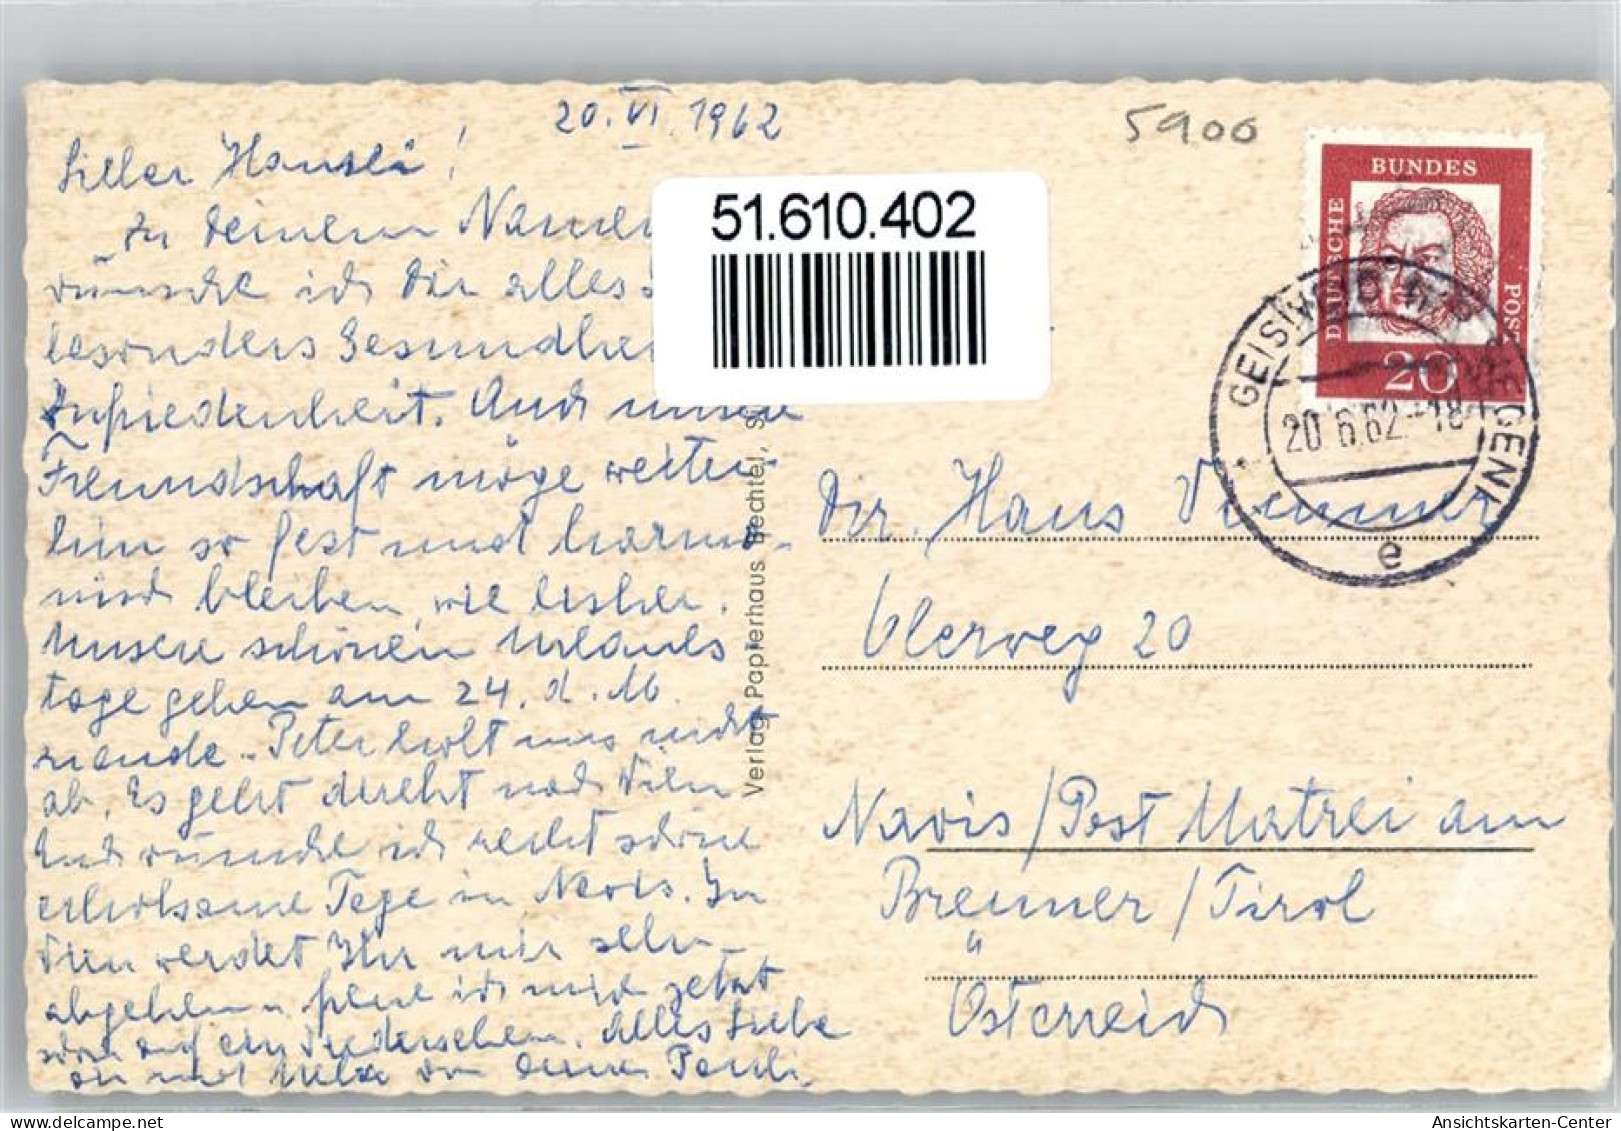 20. VI. 1962
5900
Lieber Hansli!
Zu Deinem Namen
wünsche ich Dir alles
besonders Gesundhei
Zufriedenheit. Auch unsere
Freundschaft möge weiter-
hin so fest und harmo-
nisch bleiben, wie bisher.
Unsere schönen Urlaubs
tage gehen am 24. d. M.
zu ende. Peter holt uns nicht
ab. Es geht direkt nach Wien
Euch wünsche ich recht schöne
erholsame Tage in Navis. In
Wien werdet Ihr mir sehr
abgehen u. freue ich mich jetzt
schon auf ein Wiedersehen. Alles Liebe
von Deiner
51.610.402
Verlag Papierhaus Bechtel, S
DEUTSCHE
BUNDES
POST
20
GEISLINGEN
20.6.62.-18
e
Hans
Oberweg 20
Navis/Post Matrei am
Brenner/Tirol
Österreich
Ansichtskarten-Center